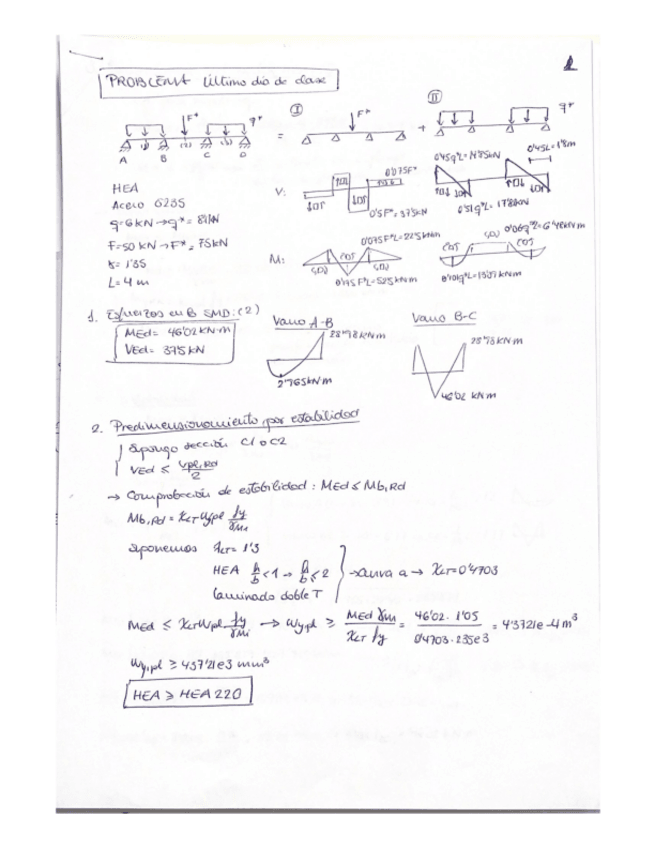 1
PROBLEMA Último día de clase
I II
F* q* = F* + q*
A B C D
(1) (2) (3)
HEA
Acero S235
q=6kN → q*= 8'1kN
F=50 kN → F*= 75kN
γ= 1'35
L= 4 m
V: 0'075F* 0'5F*= 37'5kN
0'45q*L=14'85kN 0'45L=1'8m
M: 0'075F*L=22'5kNm 0'175F*L=52'5kNm
1. Esfuerzos en B SMD: (2)
MEd= 46'02 kN·m
VEd= 37'5 kN
Vano A-B 28'98 kNm
2'765kNm
Vano B-C
46'02 kNm
2. Predimensionamiento por estabilidad
Supongo sección C1 o C2
VEd ≤ Vpl,Rd/2
→ Comprobación de estabilidad: MEd ≤ Mb,Rd
Mb,Rd = χLT Wypl fy/γM1
Suponemos λLT= 1'3
HEA h/b <1 → h/b ≤ 2
Laminado doble T
→ curva a → χLT=0'4703
MEd ≤ χLT Wypl fy/γM1 → Wy,pl ≥ MEd γM1/χLT fy = 46'02 · 1'05/0'4703 · 235e3 = 4'3721e-4 m³
Wy,pl ≥ 437'21e3 mm³
HEA ≥ HEA 220